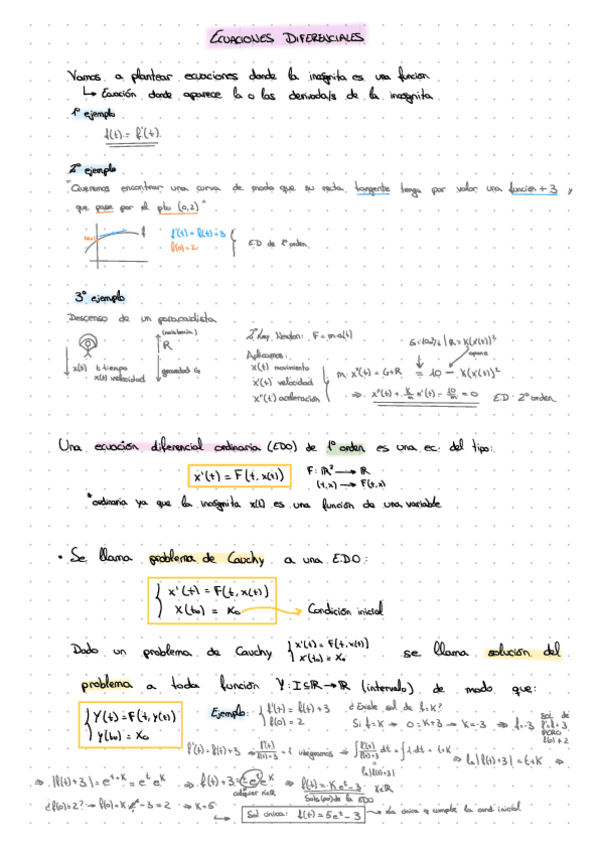 ECUACIONES DIFERENCIALES
Vamos a plantear ecuaciones donde la incógnita es una función
↳ Ecuación donde aparece la o las derivada/s de la incógnita
1º ejemplo
f(t) = f'(t)
2º ejemplo
"Queremos encontrar una curva de modo que su recta tangente tenga por valor una función + 3 y
que pase por el pto (0,2)"
f'(t) = f(t) + 3
f(0) = 2
ED de 1º orden
3º ejemplo
Descenso de un paracaidista
R
x(t) t tiempo
x'(t) velocidad
gravedad G
2º Ley Newton: F = m·a(t)
Aplicamos:
x(t) movimiento
x'(t) velocidad
x''(t) aceleración
m·x''(t) = G+R = 10 - K(x'(t))²
⇒ x''(t) + K/m x'(t) - 10/m = 0 ED 2º orden
Una ecuación diferencial ordinaria (EDO) de 1º orden es una ec. del tipo:
x'(t) = F(t, x(t))
F: ℝ² → ℝ
(t,x) → F(t,x)
*ordinaria ya que la incógnita x(t) es una función de una variable
• Se llama problema de Cauchy a una EDO:
x'(t) = F(t, x(t))
x(t₀) = x₀ → Condición inicial
Dado un problema de Cauchy { x'(t) = F(t, x(t)) x'(t₀) = x₀ se llama solución del
problema a toda función Y: I⊆ℝ → ℝ (intervalo) de modo que:
Y'(t) = F(t, y(t))
y(t₀) = x₀
Ejemplo: { f'(t) = f(t) + 3 f(0) = 2
¿Existe sol de f=K?
Si f=K → 0 = K+3 → K=-3 ⇒ f=-3
f'(t) = f(t) + 3 ⇒ f'(t)/f(t)+3 = 1 integramos ⇒ ∫ f'(t)/f(t)+3 dt = ∫ 1 dt = t+K ⇒ ln|f(t)+3| = t+K ⇒
ln|f(t)+3|
⇒ |f(t)+3| = e^(t+K) = e^t e^K ⇒ f(t)+3 = ±e^t e^K ⇒ f(t) = K e^t - 3 K∈ℝ
¿f(0)=2? → f(0) = K e⁰ - 3 = 2 → K=5
Sol única: f(t) = 5e^t - 3 → La única q cumple la cond inicial